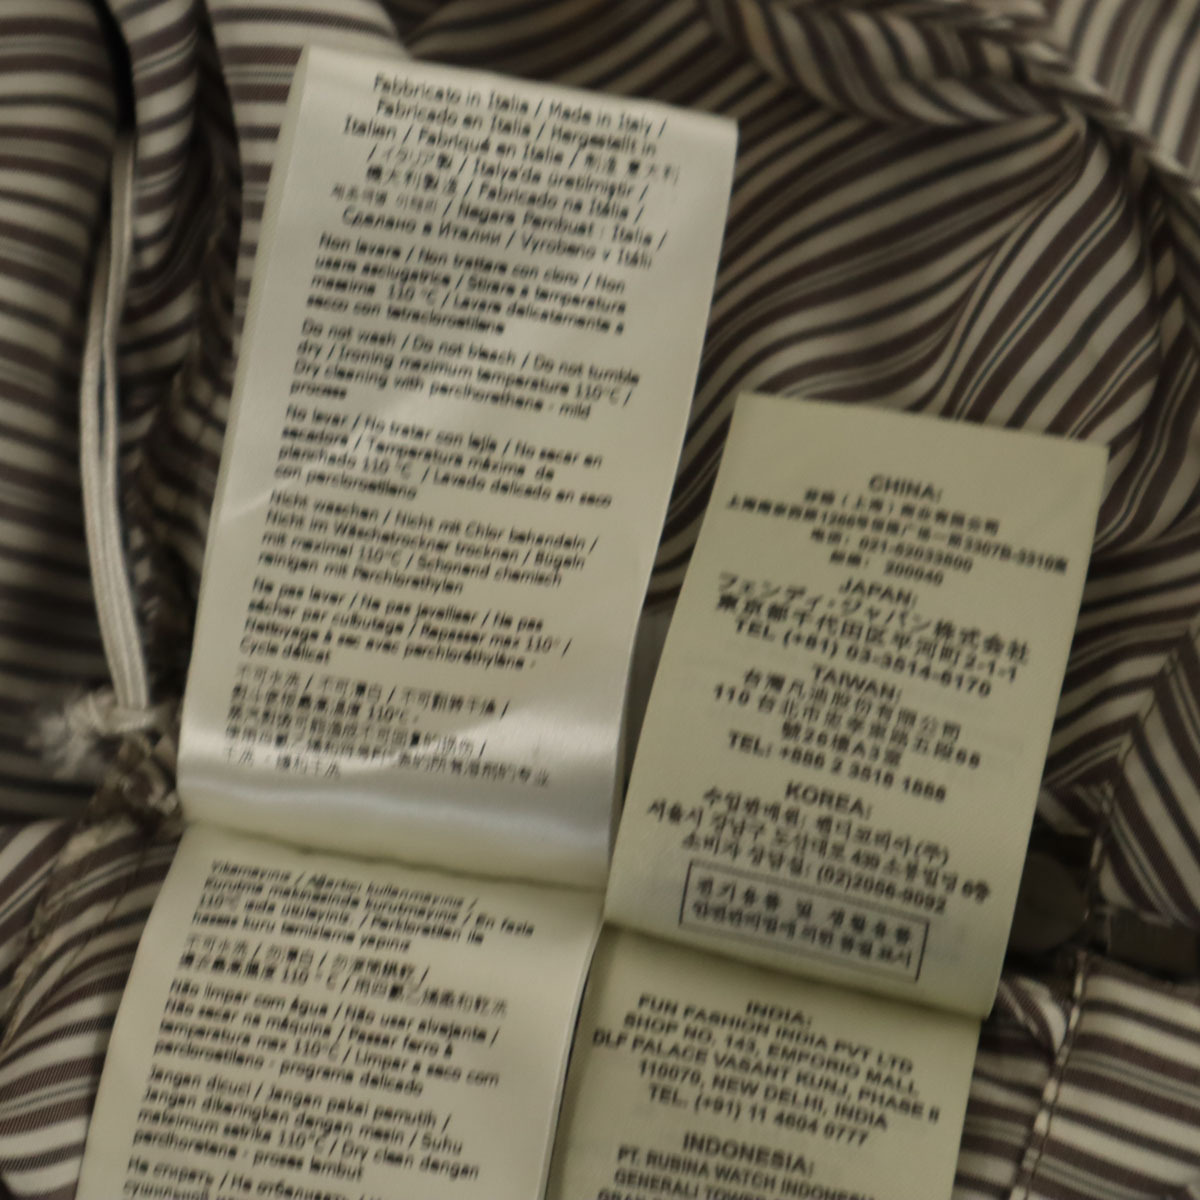 Fabbricato in Italia / Made in Italy /
Fabricado en Italia / Hergestellt in
Italien / Fabriqué en Italia / 制造 意大利
/ イタリア製 / Italya'da üretilmiştir /
義大利製造 / Fabricado na Itália /
이태리 / Negara Pembuat : Italia /
Сделано в Италии / Vyrobeno v Itálii
Non lavare / Non trattare con cloro / Non
usare asciugatrice / Stirare a temperatura
massima 110 °C / Lavare delicatamente a
secco con tetracloroetilene
Do not wash / Do not bleach / Do not tumble
dry / Ironing maximum temperature 110°C /
Dry cleaning with perclhorethene - mild
process
No lavar / No tratar con lejía / No secar en
secadora / Temperatura máxima de
planchado 110 °C / Lavado delicado en seco
con percloroetileno
Nicht waschen / Nicht mit Chlor behandeln /
Nicht im Wäschetrockner trocknen / Bügeln
mit maximal 110°C / Schonend chemisch
reinigen mit Perchlorethylen
Ne pas laver / Ne pas javelliser / Ne pas
sécher par culbutage / Repasser max 110° /
Nettoyage à sec avec perchloréthylène -
Cycle délicat
不可水洗 / 不可漂白 / 不可翻转干燥 /
熨斗底板最高温度 110℃ -
Yıkamayınız / Ağartıcı kullanmayınız /
Kurutma makinasında kurutmayınız / En fazla
110°C ısıda ütüleyiniz. / Perkloretilen ile
hassas kuru temizleme yapınız
不可水洗 / 勿漂白 / 勿滾筒烘乾 /
熨衣最高溫度 110 °C / 用四氯乙烯柔和乾洗
Não limpar com água / Não usar alvejante /
Não secar na máquina / Passar ferro à
temperatura max 110°C / Limpar a seco com
percloroetileno - programa delicado
Jangan dicuci / Jangan pakai pemutih /
Jangan dikeringkan dengan mesin / Suhu
maksimum setrika 110°C / Dry clean dengan
perchloretene - proses lembut
Не стирать / Не отбеливать /
CHINA:
(上海) 商业有限公司
上海南京西路1266号恒隆广场一期3307B-3310室
电话: 021-62033800
邮编: 200040
JAPAN:
フェンディ・ジャパン株式会社
東京都千代田区平河町2-1-1
TEL (+81) 03-3514-6170
TAIWAN:
台灣凡迪股份有限公司
110 台北市忠孝東路五段68
號26樓A3室
TEL: +886 2 3518 1888
KOREA:
수입판매원: 펜디코리아(주)
서울시 강남구 도산대로 439 소봉빌딩 6층
소비자 상담실: (02)2056-9092
INDIA:
FUN FASHION INDIA PVT LTD
SHOP NO. 143, EMPORIO MALL
DLF PALACE VASANT KUNJ, PHASE II
110070, NEW DELHI, INDIA
TEL. (+91) 11 4604 0777
INDONESIA:
PT. RUBINA WATCH INDONESIA
GENERALI TOWER